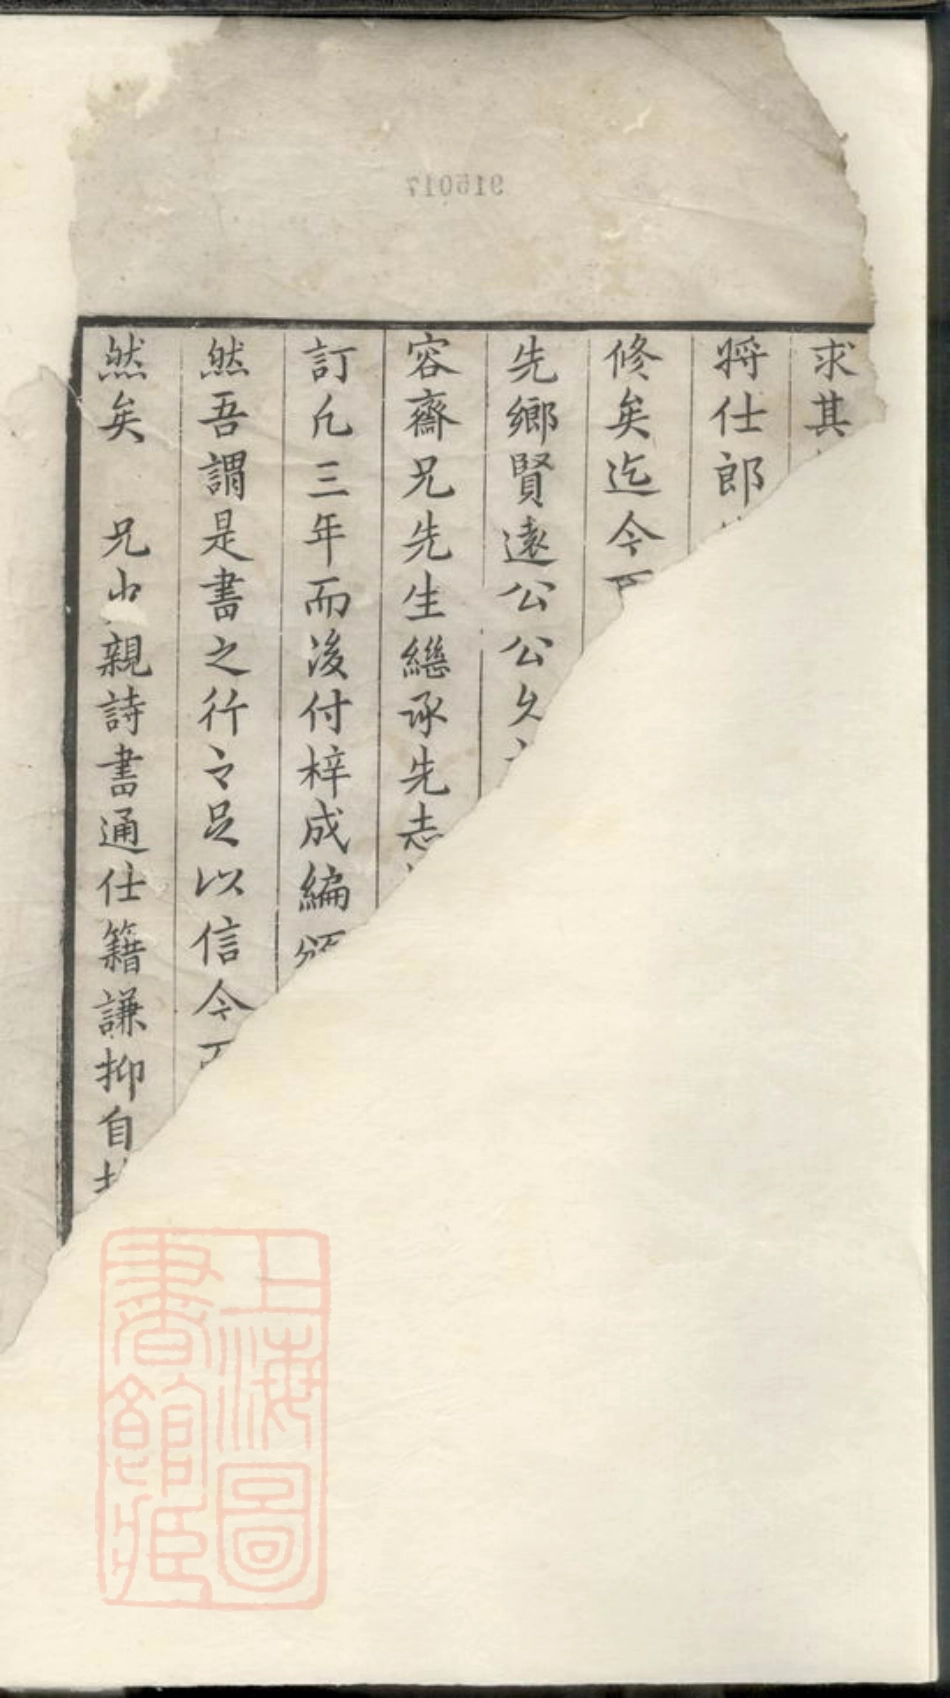 求其
將仕郎
修矣迄今
先鄉賢遠公公久
容齋兄先生繼承先志
訂凡三年而後付梓成編頒
然吾謂是書之行々足以信今
然矣 兄 親詩書通仕籍謙抑自
上海圖
書館藏
916017